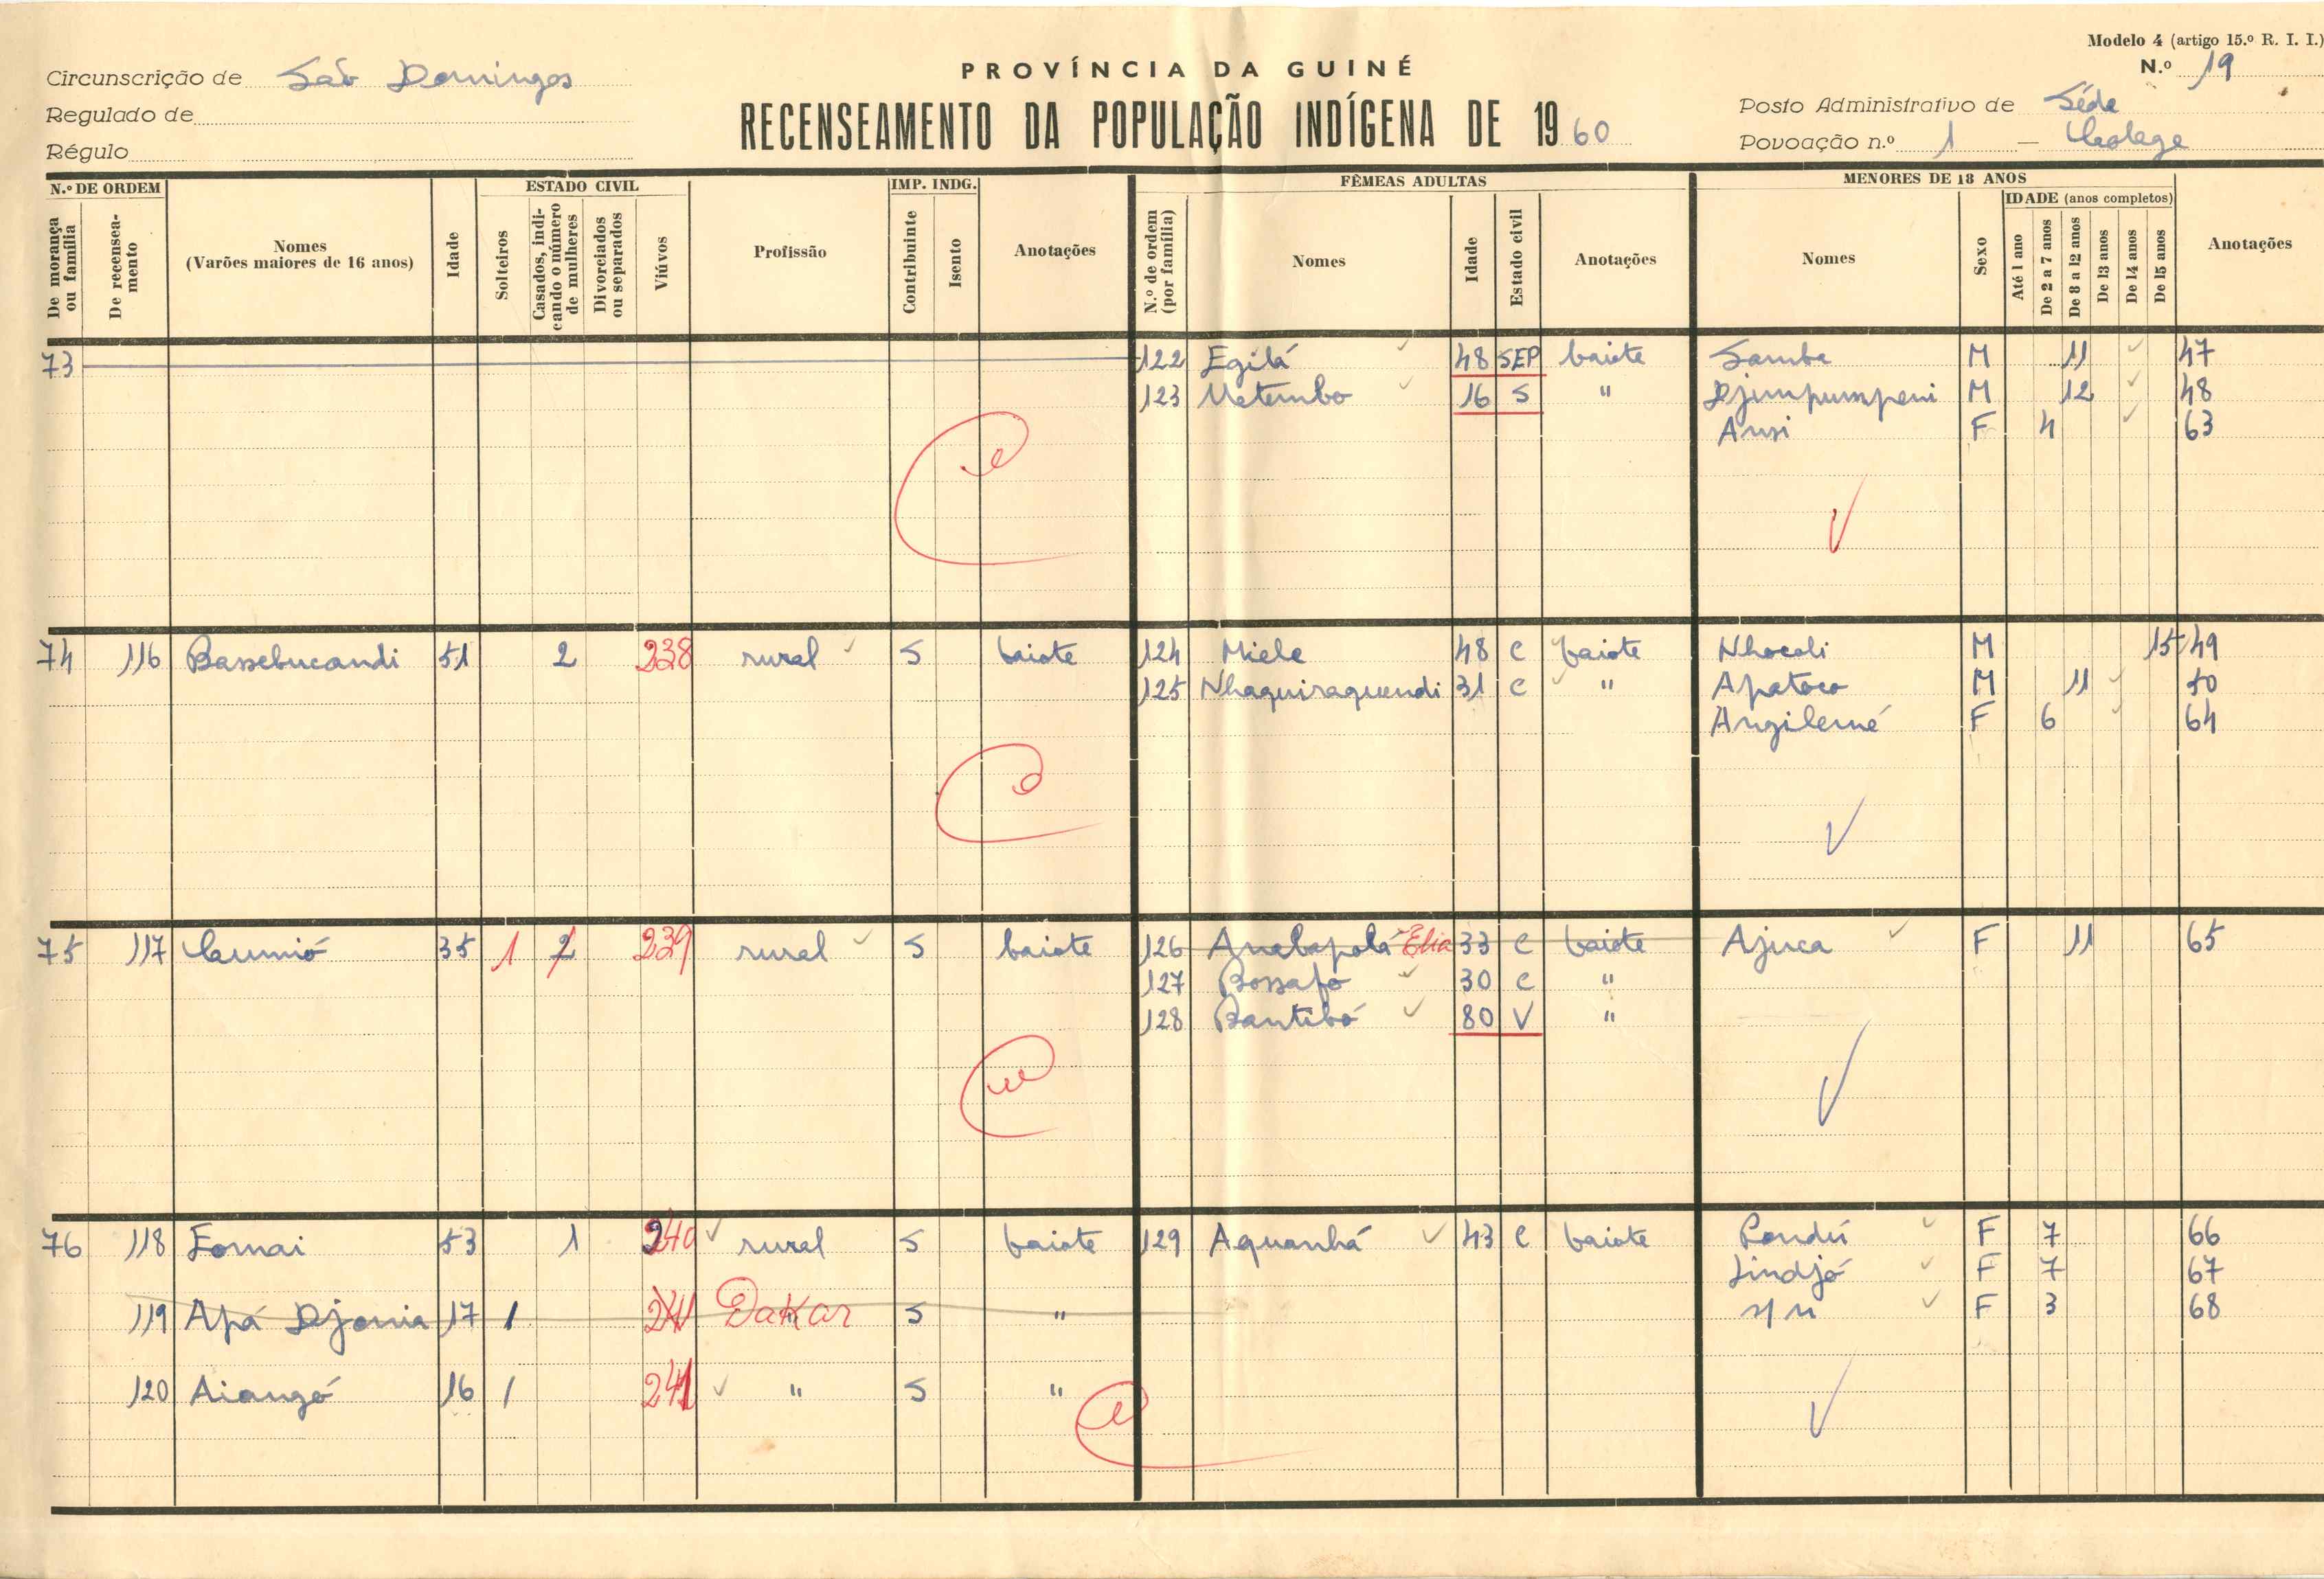 Modelo 4 (artigo 15.º R. I. I.)
N.º 19
PROVÍNCIA DA GUINÉ
RECENSEAMENTO DA POPULAÇÃO INDÍGENA DE 1960
Circunscrição de São Domingos
Regulado de
Régulo
Posto Administrativo de Séde
Povoação n.º 1 —
N.º DE ORDEM
De morança ou família
De recenseamento
Nomes
(Varões maiores de 16 anos)
Idade
ESTADO CIVIL
Solteiros
Casados, indicando o número de mulheres
Divorciados ou separados
Viúvos
Profissão
IMP. INDG.
Contribuinte
Isento
Anotações
FÊMEAS ADULTAS
N.º de ordem (por família)
Nomes
Idade
Estado civil
Anotações
MENORES DE 18 ANOS
Nomes
Sexo
IDADE (anos completos)
Até 1 ano
De 2 a 7 anos
De 8 a 12 anos
De 13 anos
De 14 anos
De 15 anos
Anotações
73 122 Egilá 48 SEP baiote Samba M 11 47
123 Metembo 16 S " Djimpumpeni M 12 48
Ansi F 4 63
74 116 Bassebucandi 51 2 238 rural S baiote 124 Miele 48 C baiote Nhocoli M 15 49
125 Nhaquiraquendi 31 C " Apatoco M 11 50
Angilerné F 6 64
75 117 35 1 2 239 rural S baiote 126 Anabapolá Elia 33 C baiote Ajuca F 11 65
127 Bossafo 30 C "
128 Bantibó 80 V "
76 118 Fomai 53 1 240 rural S baiote 129 Aquanhá 43 C baiote Pandú F 7 66
Jindjó F 7 67
119 Apá Djonia 17 1 241 Dakar S " s/n F 3 68
120 Aiangó 16 1 241 " S "